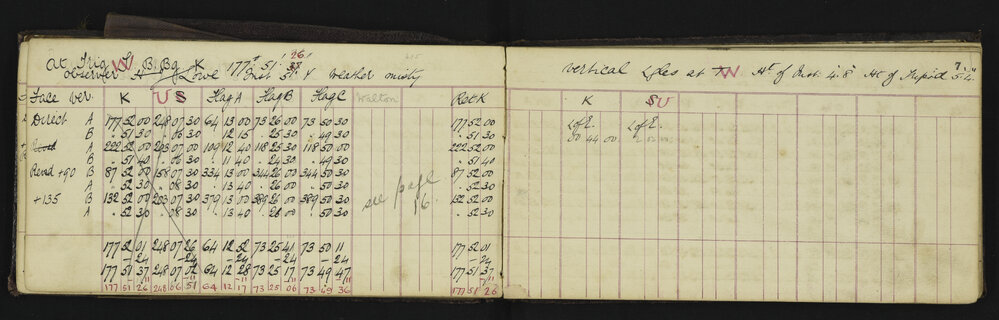 At Trig W T B. Bg K 177° 51' 38" 26"
observer A Lowe Inst 5" Y Weather misty
Face Ver. K U S Flag A Flag B Flag C Walton Ret K
Direct A 177 52 00 248 07 30 64 13 00 73 26 00 73 50 30 177 52 00
B . 51 30 . 06 30 12 15 . 25 30 . 49 30 . 51 30
A 222 52 00 293 07 00 109 12 40 118 25 30 118 50 00 222 52 00
B . 51 40 . 06 30 . 11 40 . 24 30 . 49 30 . 51 40
Revd +90 B 87 52 00 158 07 30 334 13 00 344 26 00 344 50 30 87 52 00
A . 52 30 . 08 30 . 13 40 . 26 00 . 50 30 . 52 30
+135 B 132 52 00 203 07 30 379 13 00 389 26 00 389 50 30 132 52 00
A . 52 30 . 08 30 . 13 40 . 26 00 . 50 30 . 52 30
see page 16
177 52 01 248 07 26 64 12 52 73 25 41 73 50 11 177 52 01
-24 -24 -24 -24 -24 -24
177 51 37" 248 07 02" 64 12 28" 73 25 17" 73 49 47" 177 51 37"
177 51 26 248 06 51 64 12 17 73 25 06 73 49 36 177 51 26
Vertical at W Ht of Inst 4.8" Ht of Tripod
K S U
00 44 00